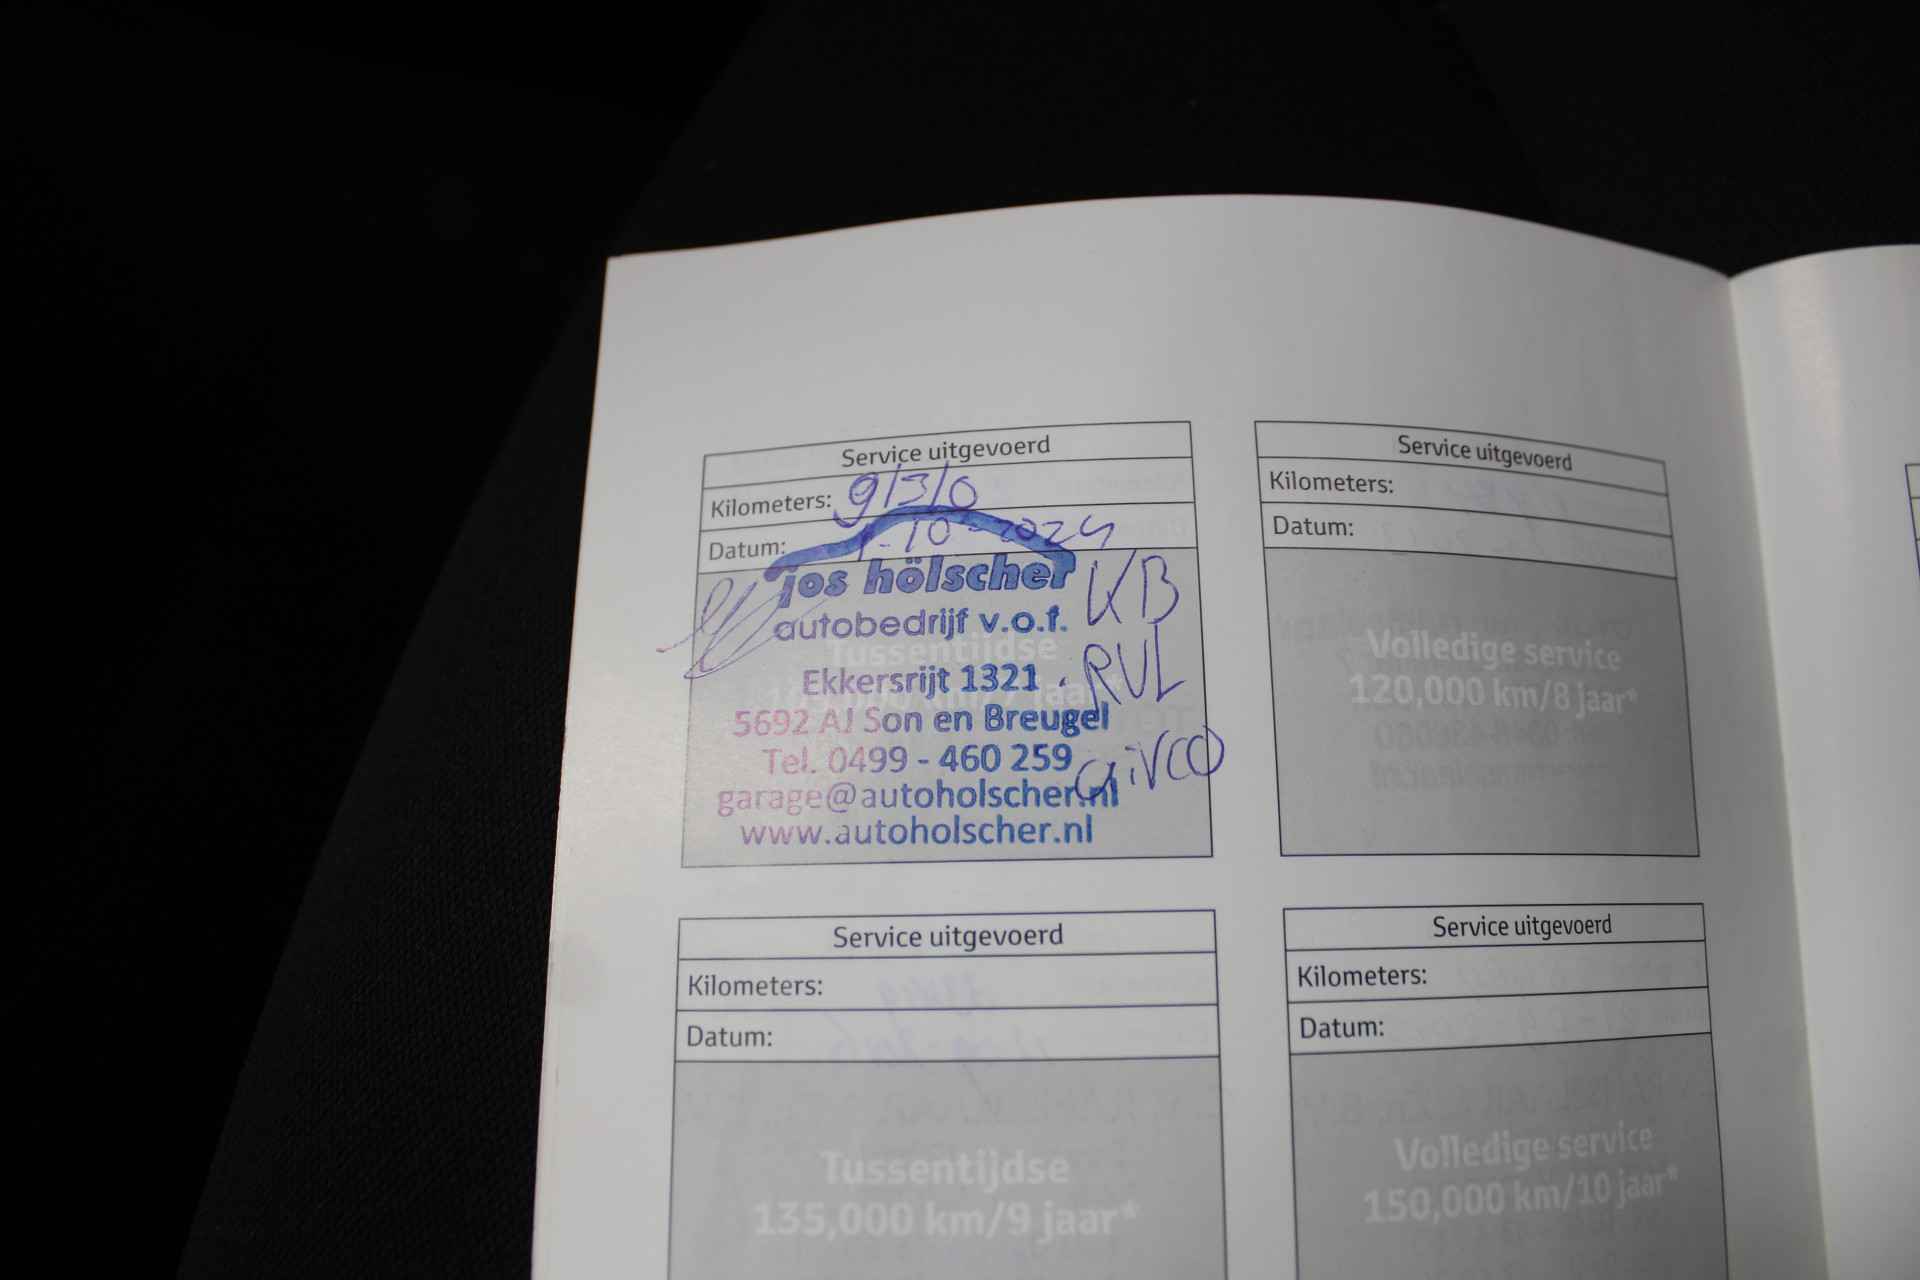 Service uitgevoerd
Kilometers: 91310
Datum: 1-10-2024
jos hölscher
autobedrijf v.o.f. KB
Tussentijdse
Ekkersrijt 1321 RVL
jaar*
5692 AJ Son en Breugel
Tel. 0499 - 460 259
garage@autoholscher.nl
www.autoholscher.nl
Service uitgevoerd
Kilometers:
Datum:
Volledige service
120,000 km/8 jaar*
Service uitgevoerd
Kilometers:
Datum:
Tussentijdse
135,000 km/9 jaar*
Service uitgevoerd
Kilometers:
Datum:
Volledige service
150,000 km/10 jaar*